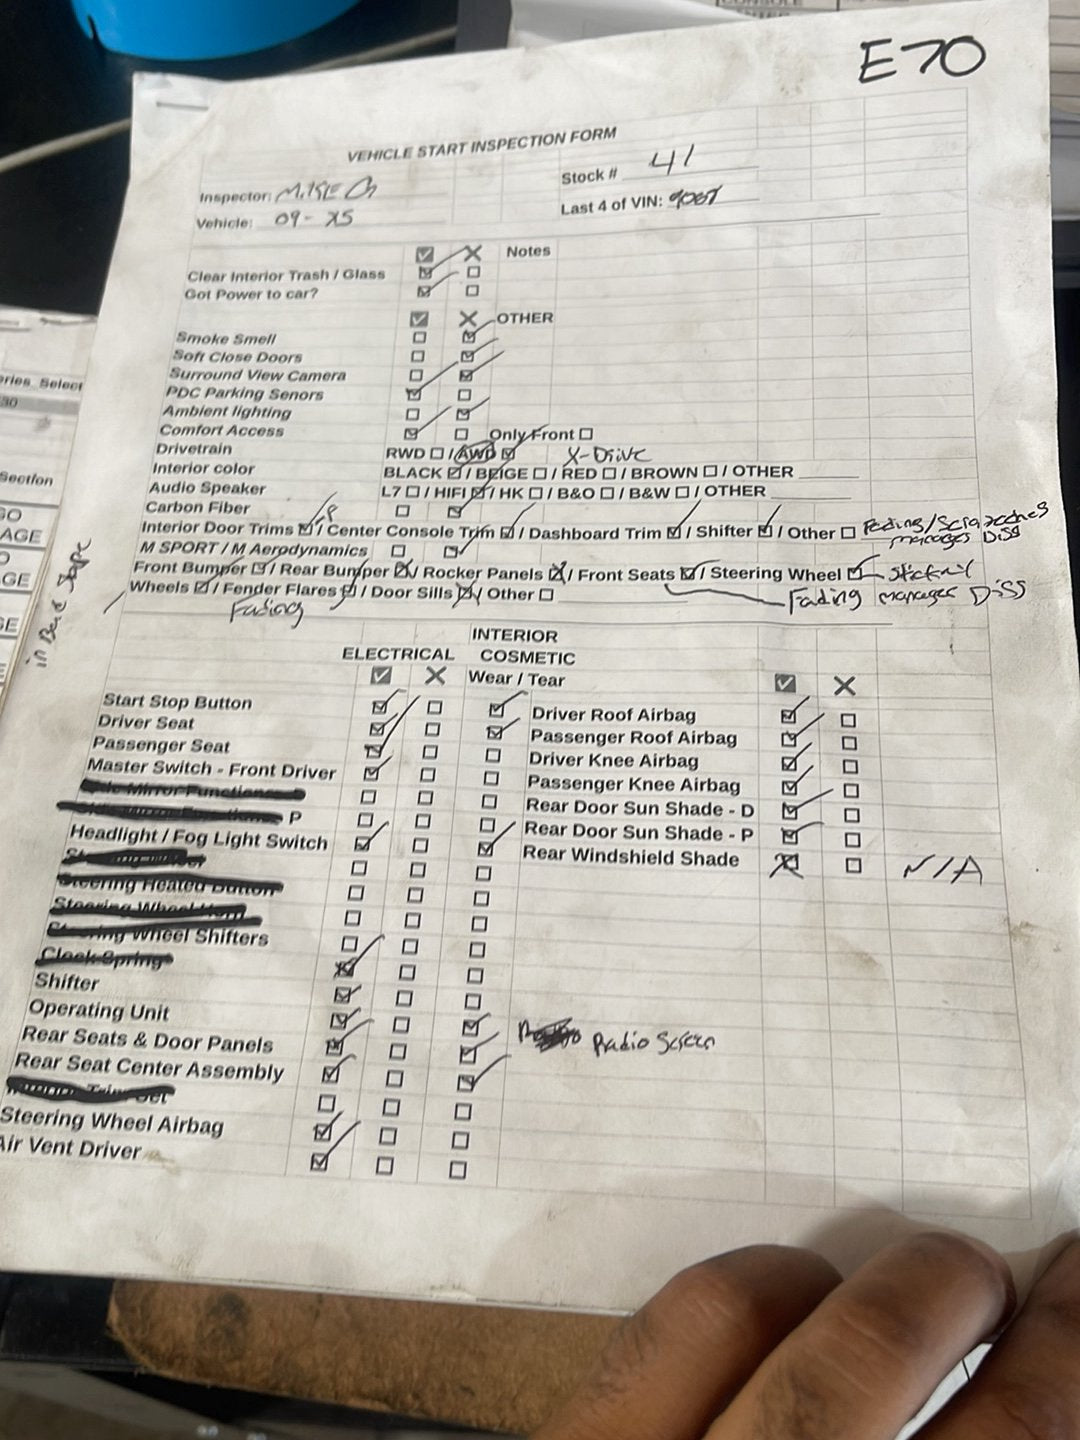 E70
VEHICLE START INSPECTION FORM
Inspector:
Stock # 41
Vehicle: 09 - X5
Last 4 of VIN:
Notes
Clear Interior Trash / Glass
Got Power to car?
OTHER
Smoke Smell
Soft Close Doors
Surround View Camera
PDC Parking Senors
Ambient lighting
Comfort Access Only Front
Drivetrain RWD / AWD X-Drive
Interior color BLACK / BEIGE / RED / BROWN / OTHER
Audio Speaker L7 / HIFI / HK / B&O / B&W / OTHER
Carbon Fiber
Interior Door Trims / Center Console Trim / Dashboard Trim / Shifter / Other Fading / Scratches
manager Diss
M SPORT / M Aerodynamics
Front Bumper / Rear Bumper / Rocker Panels / Front Seats / Steering Wheel
Wheels / Fender Flares / Door Sills / Other Fading manager Diss
Fading
INTERIOR
ELECTRICAL COSMETIC
Wear / Tear
Start Stop Button Driver Roof Airbag
Driver Seat Passenger Roof Airbag
Passenger Seat Driver Knee Airbag
Master Switch - Front Driver Passenger Knee Airbag
Side Mirror Functions D Rear Door Sun Shade - D
P Rear Door Sun Shade - P
Headlight / Fog Light Switch Rear Windshield Shade N/A
Steering Heated Button
Steering Wheel Horn
Steering Wheel Shifters
Clock Spring
Shifter
Operating Unit
Rear Seats & Door Panels Radio Screen
Rear Seat Center Assembly
Trim Set
Steering Wheel Airbag
Air Vent Driver
eries, Select
30
Section
GO
AGE
GE
in Bad Shape